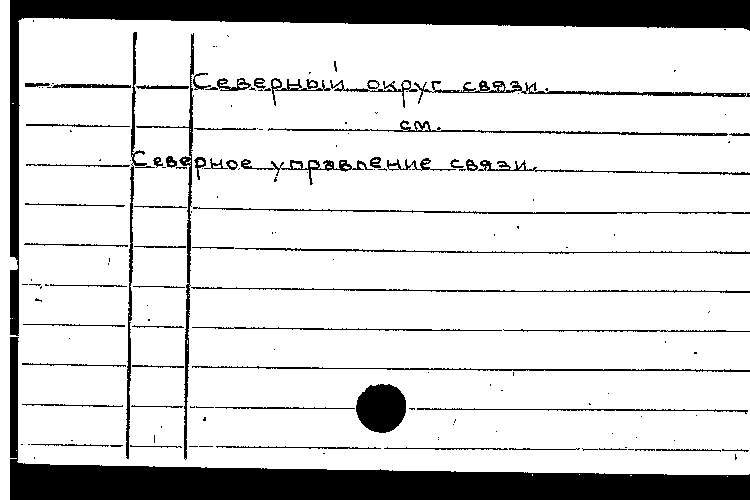 Северный округ связи.
см.
Северное управление связи.